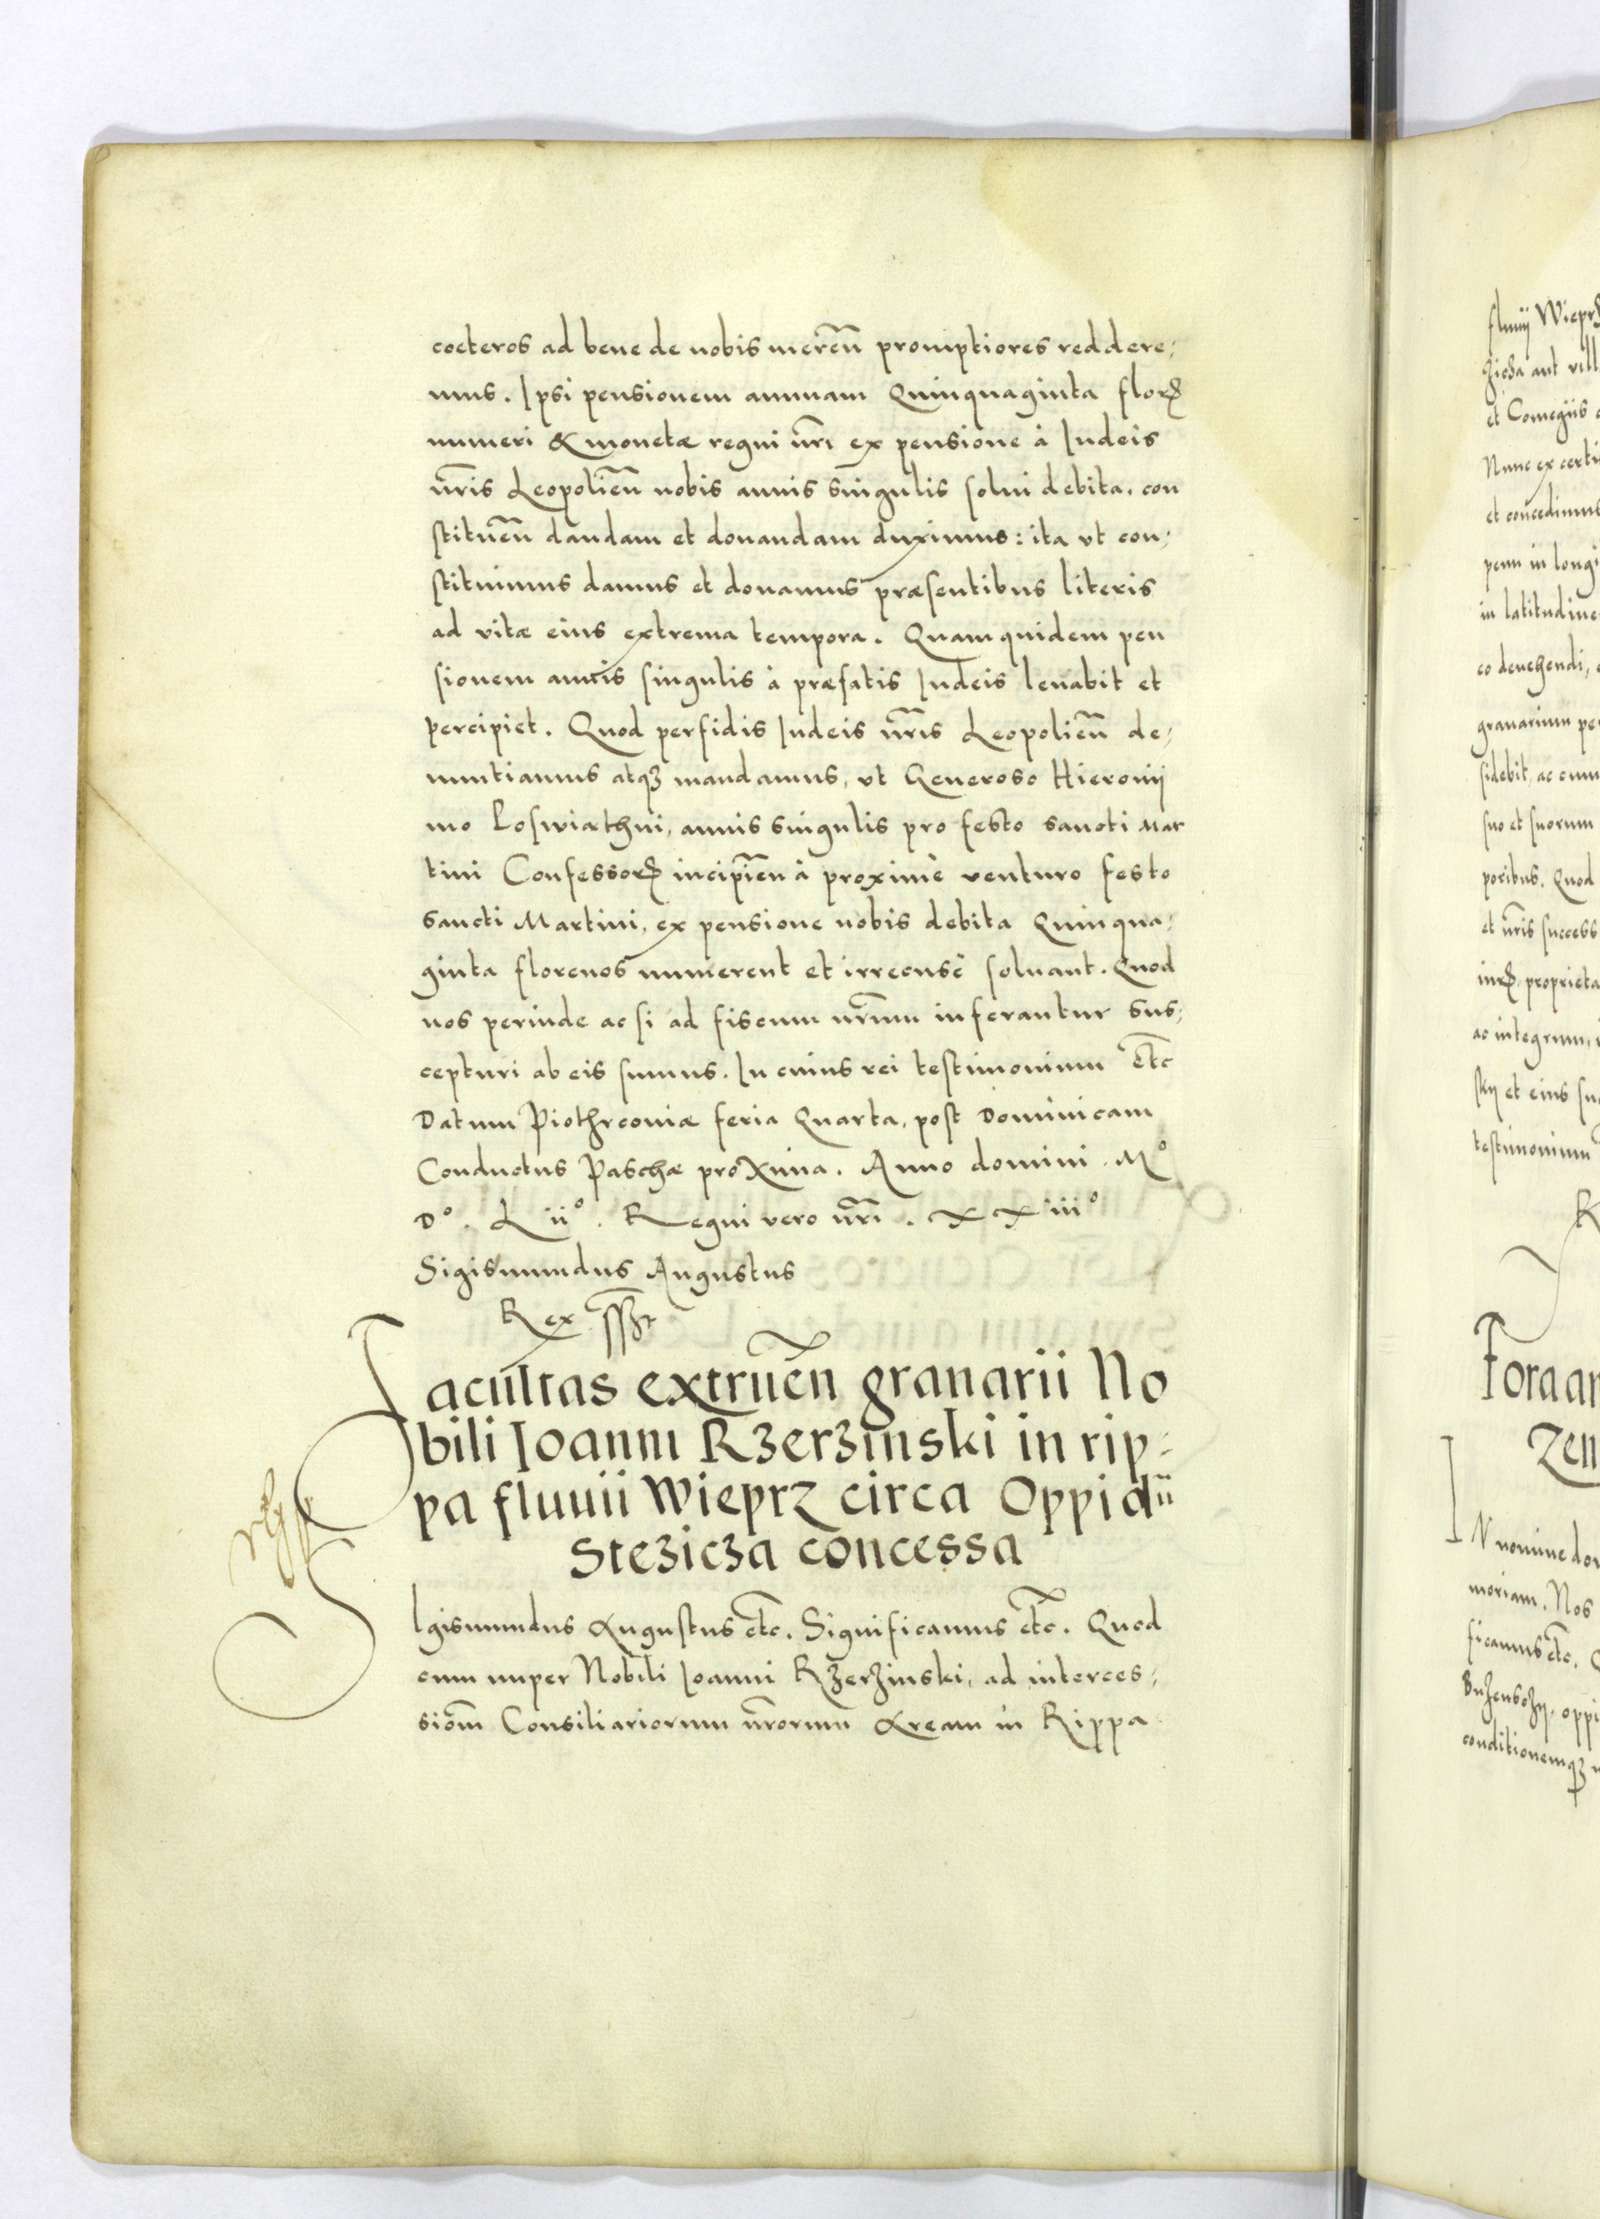 coeteros ad bene de nobis mereñ promptiores reddere,
mus. Ipsi pensionem annuam Quinquaginta floꝝ
numeri & monetæ regni nr̃i ex pensione à Iudeis
nr̃is Leopolieñ nobis annis singulis solui debita. con
stitueñ dandam et donandam duximus: ita vt con,
stituimus damus et donamus præsentibus literis
ad vitæ eius extrema tempora. Quam quidem pen
sionem annis singulis à præfatis Iudeis leuabit et
percipiet. Quod perfidis Iudeis nr̃is Leopolieñ de,
nuntiamus atqꝫ mandamus, vt Generoso Hieronij
mo Loswiathni, annis singulis pro festo sancti Mar
tini Confessoꝝ incipieñ à proximè venturo festo
Sancti Martini, ex pensione nobis debita Quinqua,
ginta florenos numerent et irrecusè soluant. Quod
nos perinde ac si ad fiscum nr̃mu inferantur sus,
cepturi ab eis sumus. In cuius rei testimonium etc̃
Datum Piothrconiæ feria Quarta, post Dominicam
Conductus Paschæ proxima. Anno domini. M°
D°. L ii°. Regni vero nr̃i. XXiii°
Sigismundus Augustus
Rex sszt
Facultas extrueñ granarii No
bili Ioanni Rzerzinski in rip,
pa fluuii Wieprz circa Oppidũ
Stezicza concessa
SIgismundus Augustus etc̃. Significamus etc̃. Quod
cum nuper Nobili Ioanni Rzerzinski, ad interces,
siom̃ Consiliariorum nr̃orum Aream in Rippa
fluuij Wieprz
zicza aut vill
et Comegiis
Nunc ex certi
et concedimus
penu in longi
in latitudine
eo deuehendi,
granarium per
sidebit, ac cum
suo et suorum
poribus. Quod
et nr̃is success
iuꝝ, proprieta
ac integrum,
skij et eius su
testimonium
R
Fora an
Zen
IN nomine do
moriam. Nos
ficamus etc̃.
oppi
conditionemqꝫ